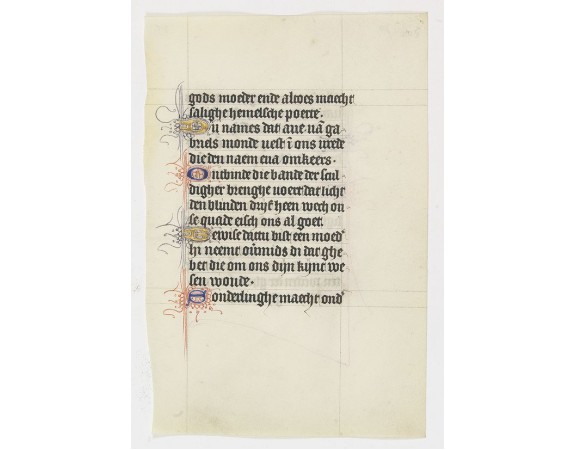 gods moeder ende altoes maecht
salighe hemelsche poerte.
Du names dat aue uā ga
briels monde uest ī ons urede
die den naem eua omkeers.
Ontbinde die bande der scul
digher brenghe uoert dat licht
den blinden drijf heen wech on
se quade eisch ons al goet.
Bewise dattu bist een moed
hi neemt ouermids di dat ghe
bet die om ons dijn kijnt we
sen woude.
Sonderlinghe maecht ond